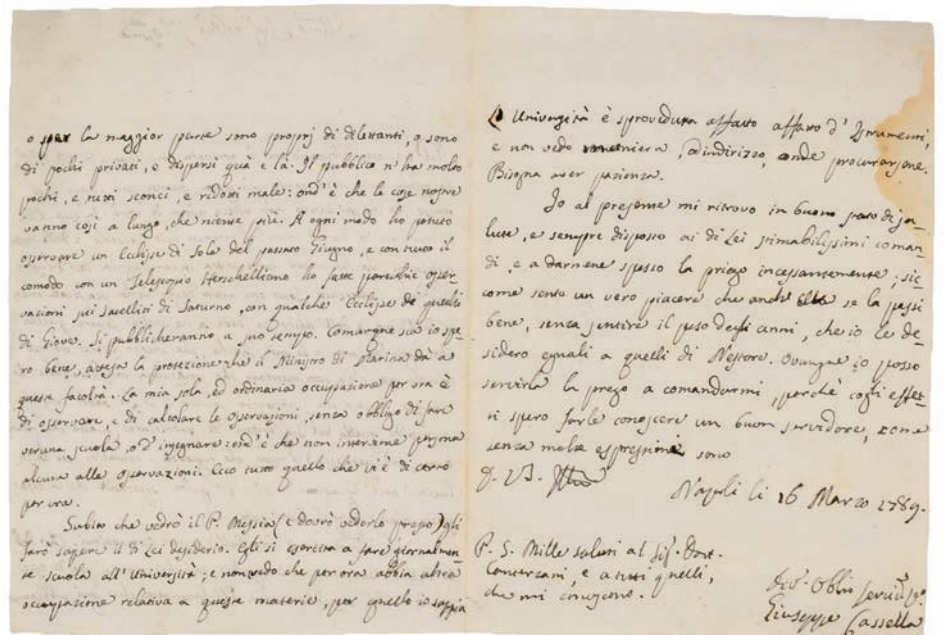 o per la maggior parte sono proprj di dilettanti, o sono
di pochi privati, e dispersi quà e là. Il pubblico n'ha molto
pochi, e questi sconci, e ridotti male: ond'è che le cose nostre
vanno così a lungo, che niente più. A ogni modo ho potuto
osservare un Eclisse di Sole del passato Giugno, e con tutto il
comodo con un Telescopio Herschelliano ho fatte parecchie osser-
vazioni sui Satelliti di Saturno, con qualche Eclisse di quelli
di Giove. Si pubblicheranno a suo tempo. Comunque sia io spe-
ro bene, attesa la protezione che il Ministro di Marina dà a
queste facoltà. La mia sola, ed ordinaria occupazione per ora è
di osservare, e di calcolare le osservazioni, senza obbligo di fare
veruna scuola, o d'insegnare: ond'è che non interviene persona
alcuna alle osservazioni. Ecco tutto quello che vi è di certo
per ora.
Subito che vedrò il P. Messia (e dovrò vederlo presto) gli
farò sapere il di Lei desiderio. Egli si esercita a fare giornalmen-
te scuola all'Università; e non vedo che per ora abbia altra
occupazione relativa a queste materie, per quello io sappia
L'Università è sproveduta affatto affatto d'Istrumenti,
e non vedo maniera, o indirizzo, onde procurarsene.
Bisogna aver pazienza.
Io al presente mi ritrovo in buono stato di sa-
lute, e sempre disposto ai di Lei stimabilissimi coman-
di, e a darmene spesso la priego incessantemente; sic-
come sento un vero piacere che anch'ella se la passi
bene, senza sentire il peso degli anni, che io le de-
sidero eguali a quelli di Nestore. Ovunque io posso
servirla la prego a comandarmi, perchè cogli effet-
ti spero farle conoscere un buon servidore, come
senza molte espressioni sono
D. V. S.
Napoli li 16 Marzo 1789.
P. S. Mille saluti al Sig. Dott.
Conterzani, e a tutti quelli,
che mi conoscono.
Dev. Obblmo Servid.
Giuseppe Cassella